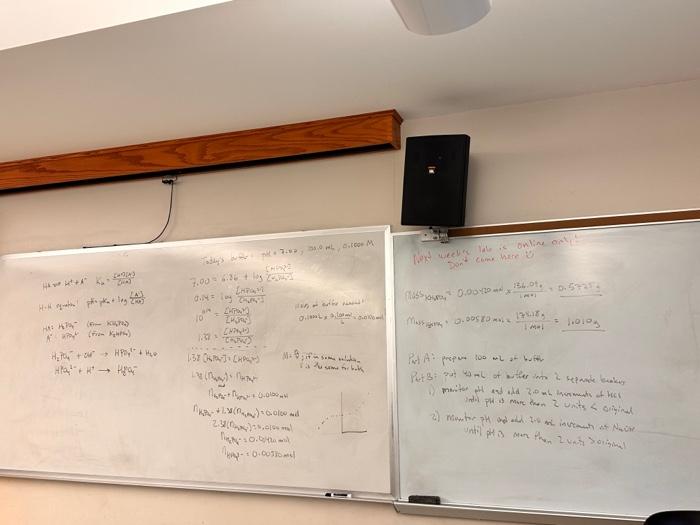 HA ⇌ H⁺ + A⁻ Ka = [H⁺][A⁻]/[HA]
H-H equation: pH = pKa + log [A⁻]/[HA]
HA: H₂PO₄⁻ (from KH₂PO₄)
A⁻: HPO₄²⁻ (from K₂HPO₄)
H₂PO₄⁻ + OH⁻ → HPO₄²⁻ + H₂O
HPO₄²⁻ + H⁺ → H₂PO₄⁻
Today's buffer: pH = 7.00, 100.0 mL, 0.1000 M
7.00 = 6.86 + log [HPO₄²⁻]/[H₂PO₄⁻]
0.14 = log [HPO₄²⁻]/[H₂PO₄⁻]
10^0.14 = [HPO₄²⁻]/[H₂PO₄⁻]
1.38 = [HPO₄²⁻]/[H₂PO₄⁻]
1.38 [H₂PO₄⁻] = [HPO₄²⁻]
1.38 (nH₂PO₄⁻) = nHPO₄²⁻
nH₂PO₄⁻ + nHPO₄²⁻ = 0.0100 mol
nH₂PO₄⁻ + 1.38(nH₂PO₄⁻) = 0.0100 mol
2.38(nH₂PO₄⁻) = 0.0100 mol
nH₂PO₄⁻ = 0.00420 mol
nHPO₄²⁻ = 0.00580 mol
moles of buffer needed:
M = n/V; if in same solution
V is the same for both
Next week's lab is online only!
Don't come here :)
Mass KH₂PO₄ = 0.00420 mol × 136.09g/1 mol = 0.5725g
Mass K₂HPO₄ = 0.00580 mol × 174.18g/1 mol = 1.010g
Part A: prepare 100 mL of buffer
Part B: put 40 mL of buffer into 2 separate beakers
1) monitor pH and add 2.0 mL increments of HCl
until pH is more than 2 units < original
2) monitor pH and add 2.0 mL increments of NaOH
until pH is more than 2 units > original